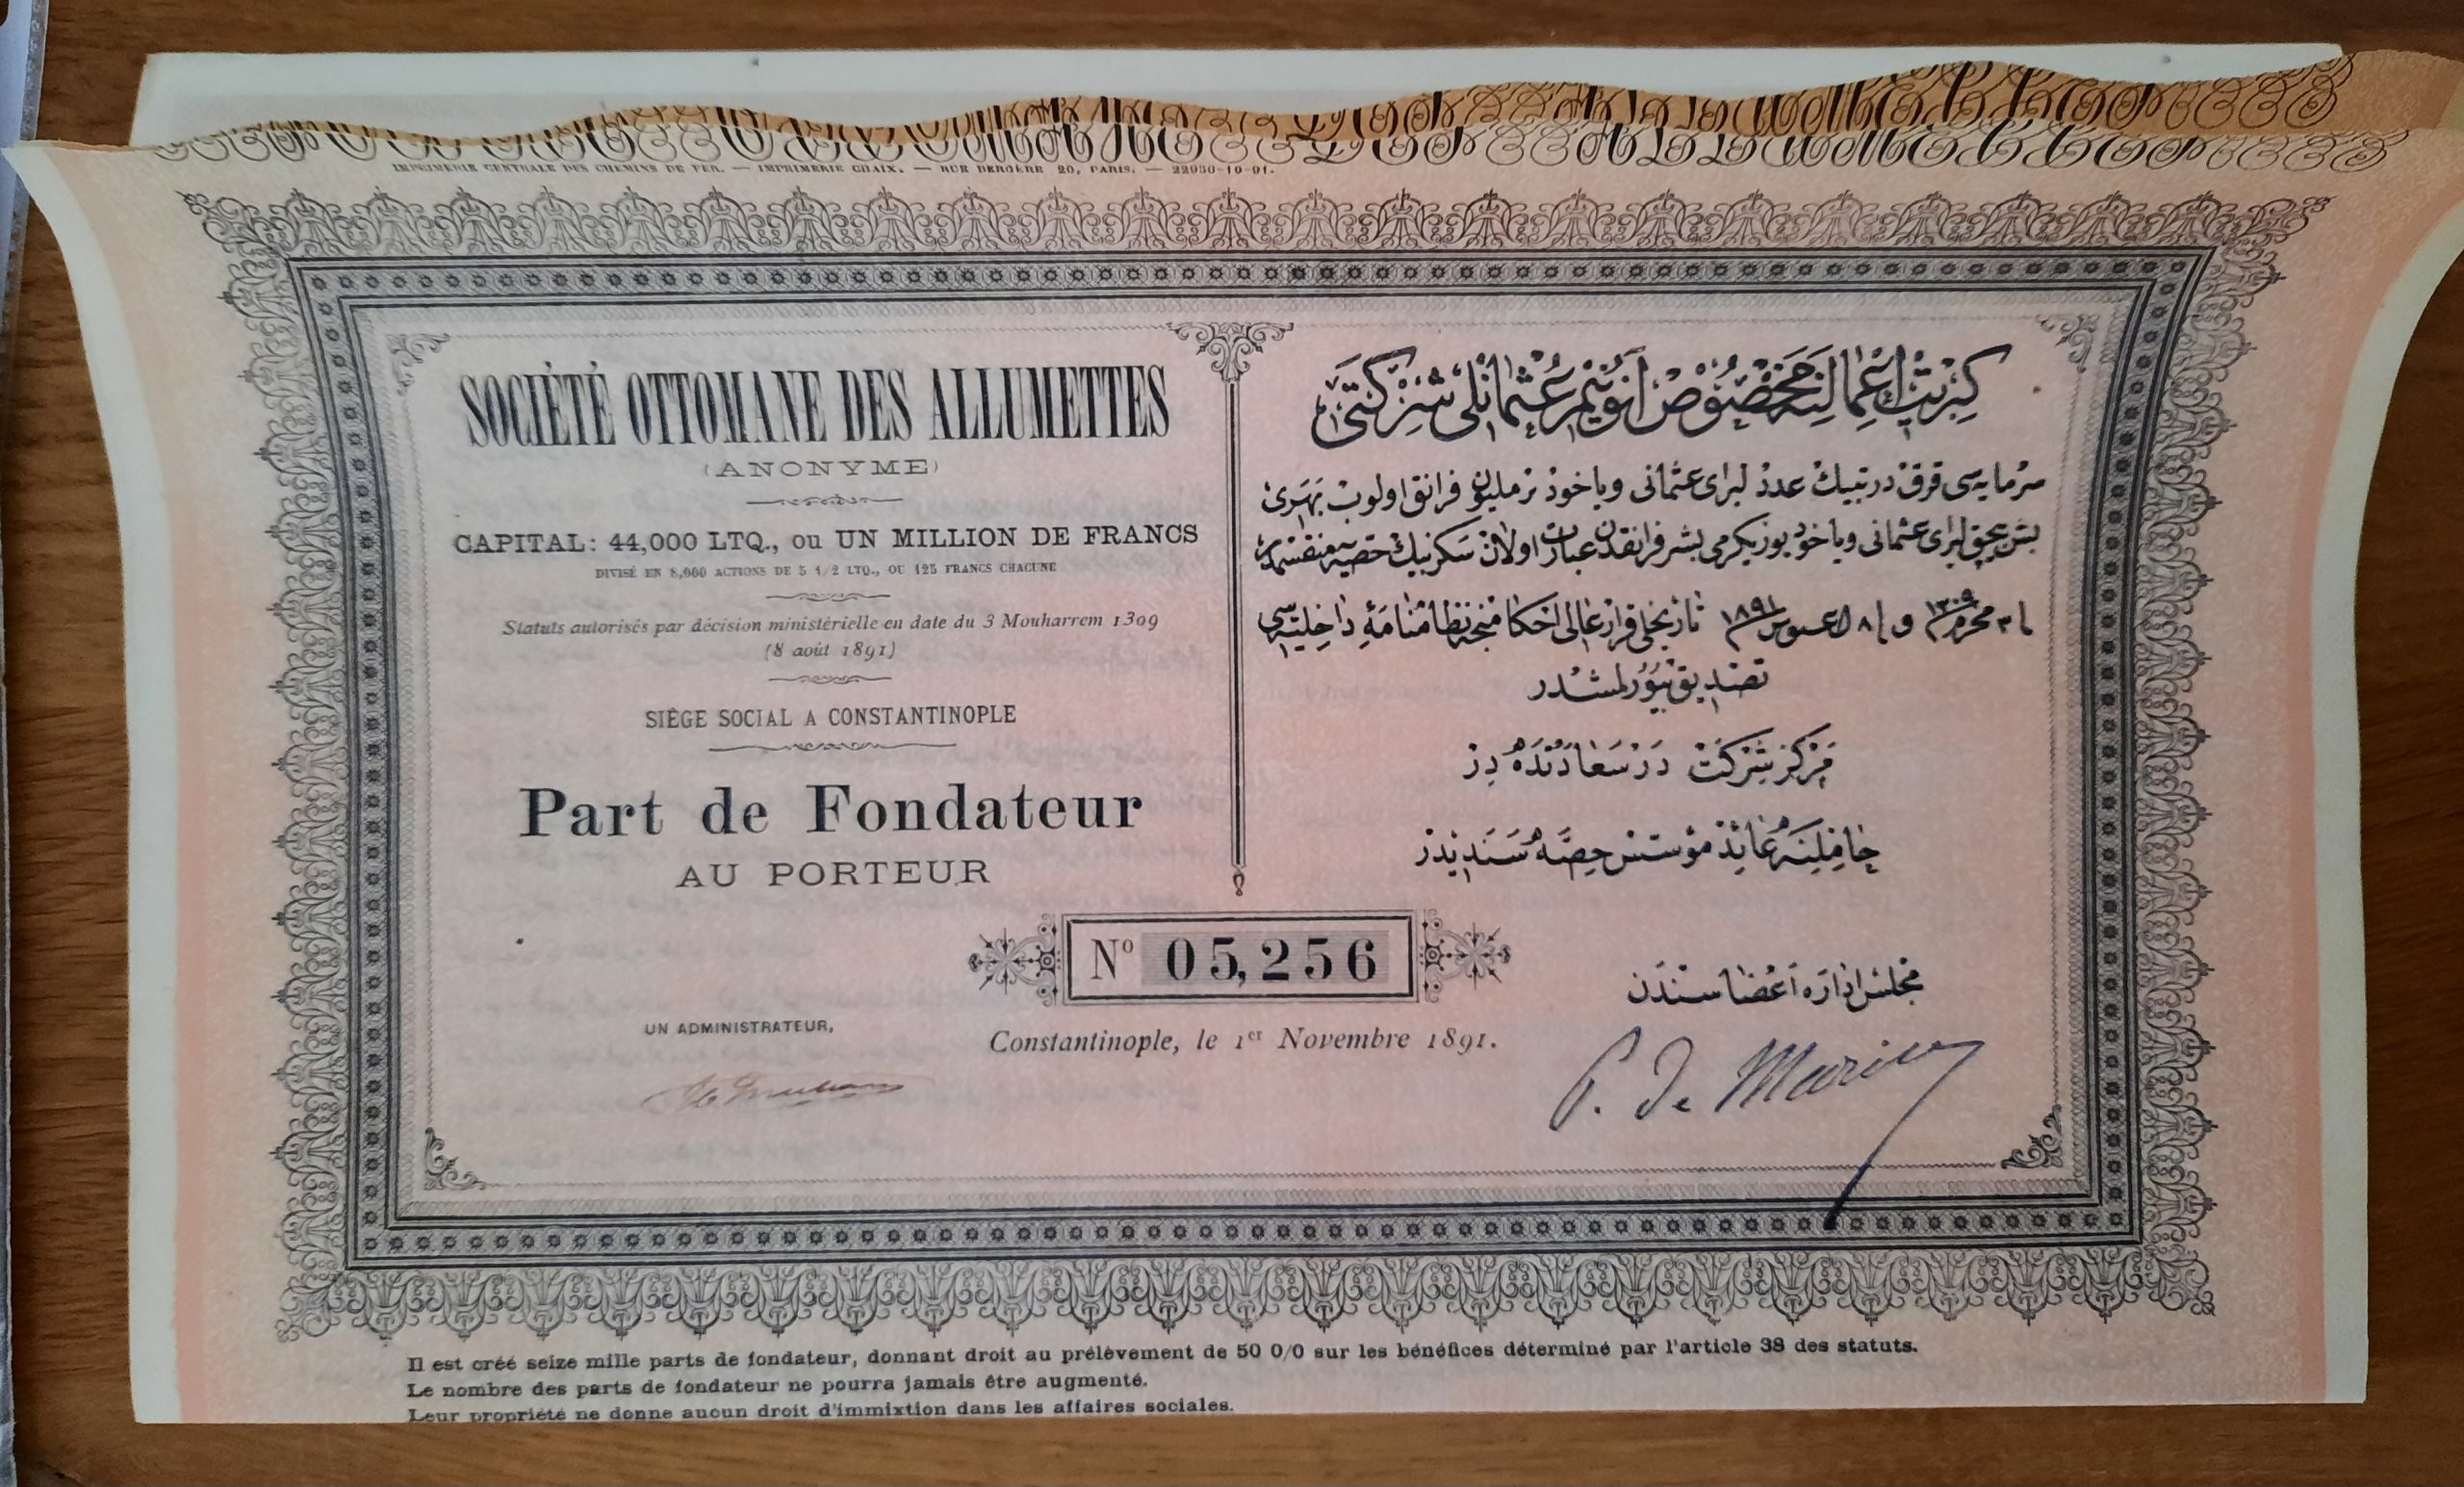 IMPRIMERIE CENTRALE DES CHEMINS DE FER. — IMPRIMERIE CHAIX. — RUE BERGÈRE 20, PARIS. — 22930-10-91.
SOCIÉTÉ OTTOMANE DES ALLUMETTES
(ANONYME)
CAPITAL: 44,000 LTQ., ou UN MILLION DE FRANCS
DIVISÉ EN 8,000 ACTIONS DE 5 1/2 LTQ., OU 125 FRANCS CHACUNE
Statuts autorisés par décision ministérielle en date du 3 Mouharrem 1309
(8 août 1891)
SIÈGE SOCIAL A CONSTANTINOPLE
Part de Fondateur
AU PORTEUR
كبريت اعمالنه مخصوص آنونيم عثمانلى شركتى
سرمايه‌سى قرق درت بيك عدد ليراى عثمانى وياخود بر مليون فرانق اولوب بهرى
بش بچق ليراى عثمانى وياخود يوز يكرمى بشر فرانقدن عبارت اولان سكز بيك حصه‌يه منقسمدر
فى ٣ محرم ١٣٠٩ و فى ٨ اغستوس ١٨٩١ تاريخلى قرار عالى احكامنجه نظامنامهٔ داخليسى
تصديق بيورلمشدر
مركز شركت درسعادتده در
حاملنه عائد مؤسس حصه سنديدر
Nº 05,256
مجلس اداره اعضاسندن
UN ADMINISTRATEUR,
Constantinople, le 1er Novembre 1891.
Il est créé seize mille parts de fondateur, donnant droit au prélèvement de 50 0/0 sur les bénéfices déterminé par l'article 38 des statuts.
Le nombre des parts de fondateur ne pourra jamais être augmenté.
Leur propriété ne donne aucun droit d'immixtion dans les affaires sociales.